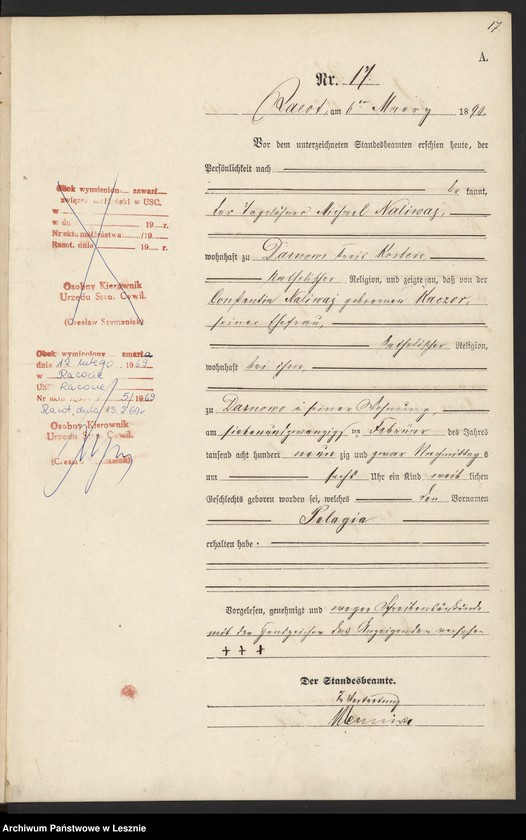 17.
A.
Nr. 17.
Racot, am 6ten März 1890.
Vor dem unterzeichneten Standesbeamten erschien heute, der
Persönlichkeit nach
be kannt,
der Tagelöhner Michael Naliwaj,
wohnhaft zu Darnowo Kreis Kosten
katholischer Religion, und zeigte an, daß von der
Constantia Naliwaj geborenen Kaczor,
seiner Ehefrau,
katholischer Religion,
wohnhaft bei ihm
zu Darnowo in seiner Wohnung,
am siebenundzwanzigsten Februar des Jahres
tausend acht hundert neun zig und zwar Nachmittags
um sechs Uhr ein Kind weib lichen
Geschlechts geboren worden sei, welches den Vornamen
Pelagia
erhalten habe.
Vorgelesen, genehmigt und wegen Schreibensunkunde
mit den Handzeichen des Anzeigenden versehen
+ + +
Der Standesbeamte.
In Vertretung
Obok wymienion zawarł
związek małżeński w USC.
w
w dn. 19 r.
Nr aktu małżeństwa /19
Racot. dnia 19 r.
Osobny Kierownik
Urzędu Stan. Cywil.
(Czesław Szymański)
Obok wymieniony zmarła
dnia 12 lutego 1969
w Racocie
USC Racocie
Nr aktu 5/1969
Racot, dnia 13.2.69r
Osobny Kierownik
Urzędu Stan. Cywil.
(Czesław Szymański)
Archiwum Państwowe w Lesznie